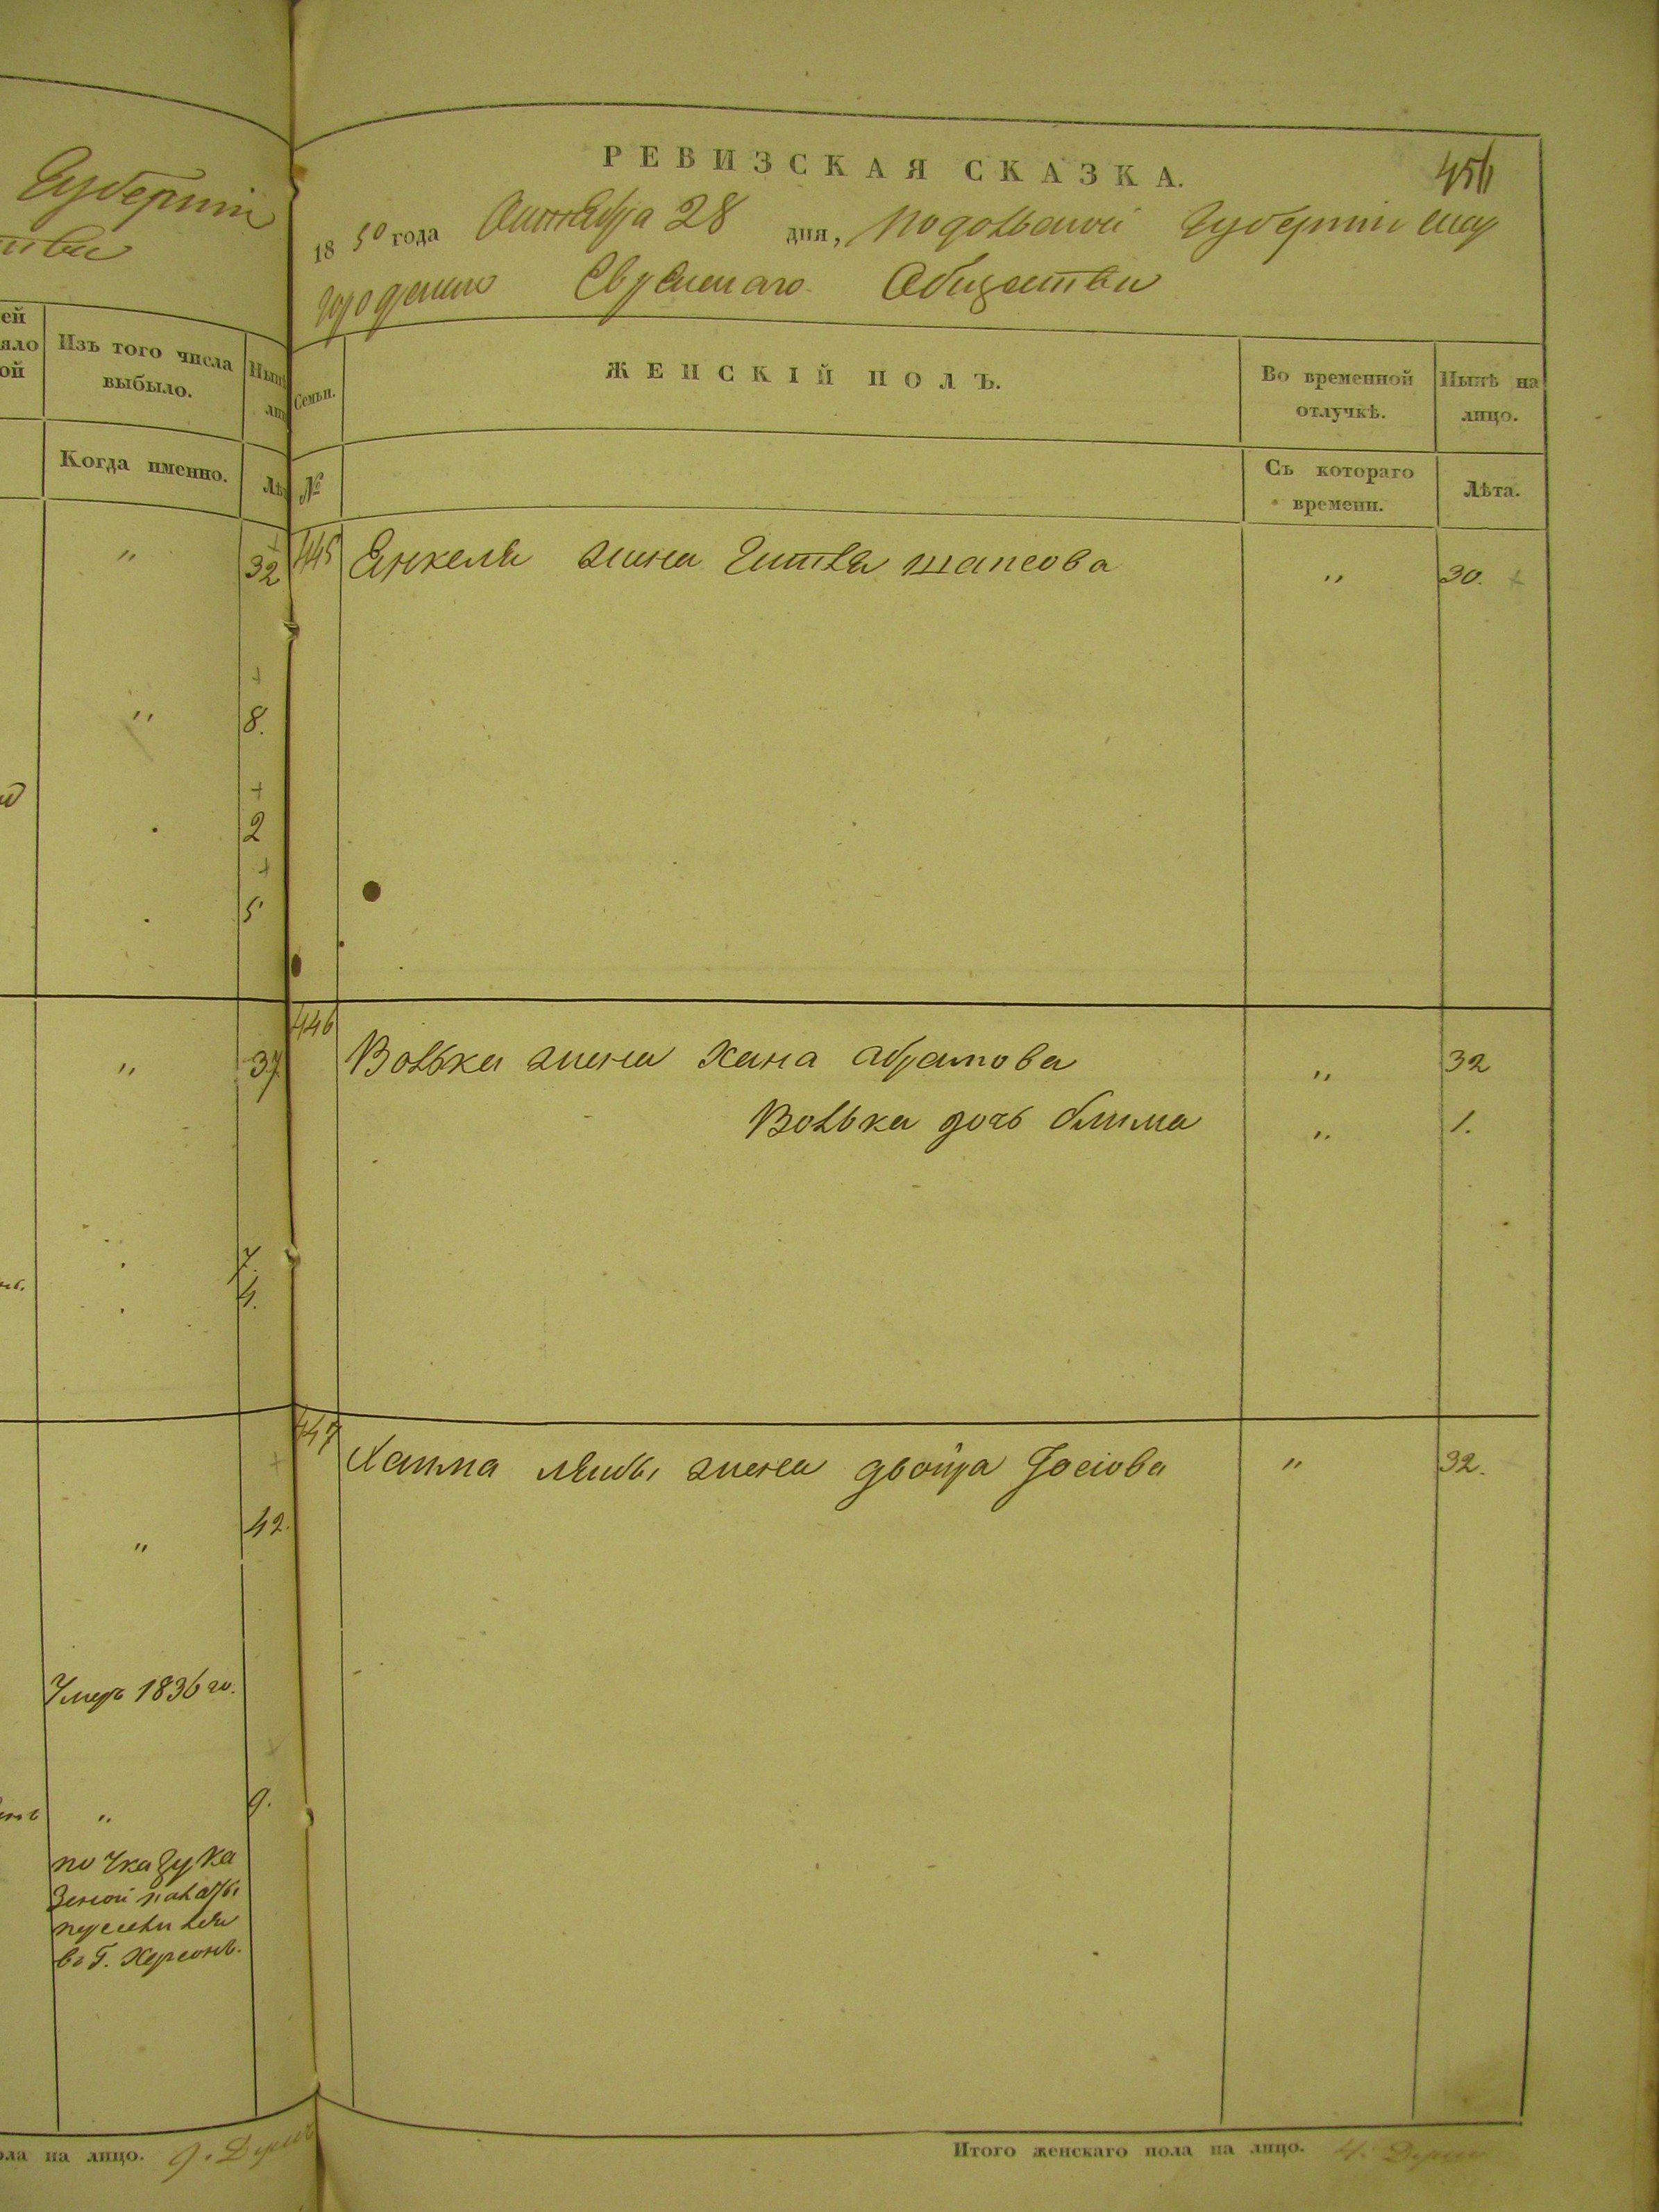 Губерніи
тва
ей
яло
ой
Изъ того числа
выбыло.
Нынѣ
лиц
Когда именно.
Лѣт
"
32
"
8.
2
5
"
37.
7.
4.
"
42.
Умеръ 1836 го.
"
9.
по Указу Ка
зенной палаты
въ Г. Херсонъ.
ола на лицо. 9.
РЕВИЗСКАЯ СКАЗКА.
456
1850 года Октября 28 дня, Подольской Губерніи
Еврейскаго Общества
Семьи.
ЖЕНСКІЙ ПОЛЪ.
Во временной
отлучкѣ.
Нынѣ на
лицо.
№
Съ котораго
времени.
Лѣта.
445 Янкеля жена Гитля Шапсова " 30.
446
Волька жена Хана Абрамова " 32
Волька дочь Блима " 1.
447
Хаима жена Двойра Іосіова " 32.
Итого женскаго пола на лицо. 4.